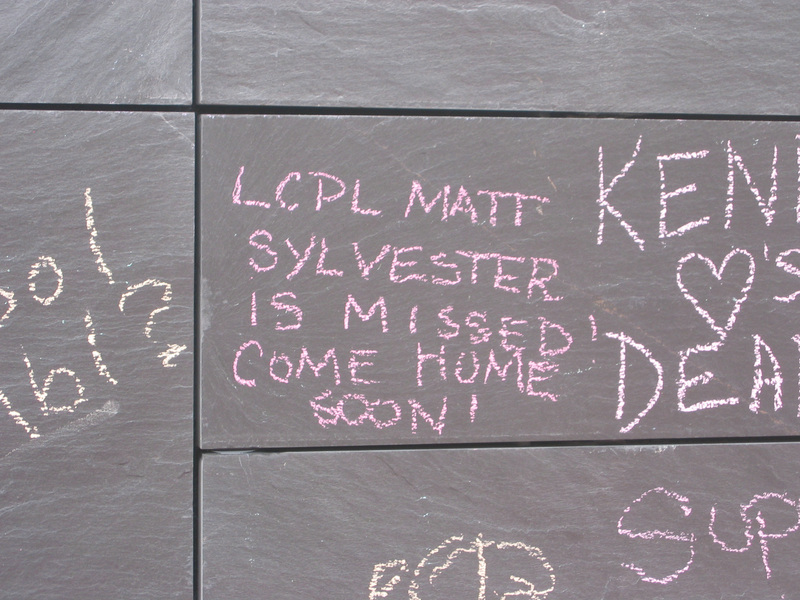 LCPL MATT
SYLVESTER
IS MISSED!
COME HOME
SOON!
KEN
♥'S
DEA
SUP